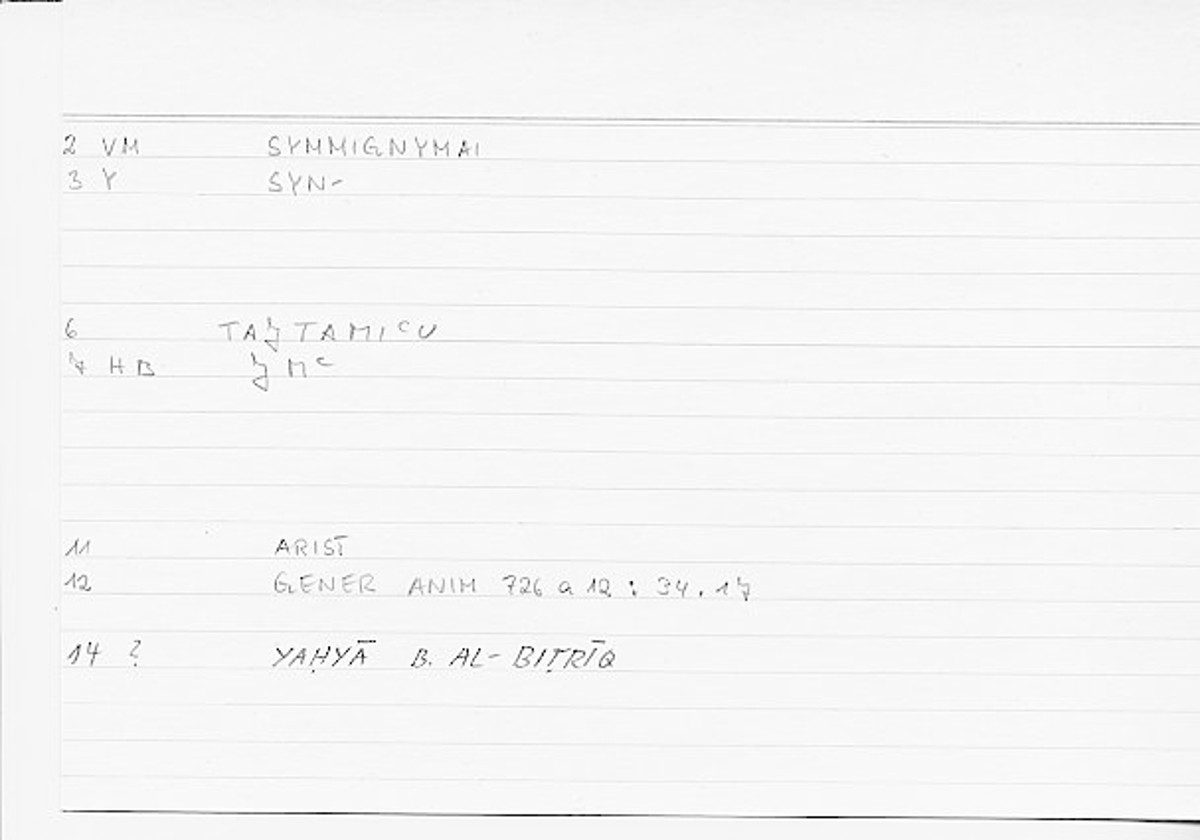 2 VM SYMMIGNYMAI
3 Y SYN-
6 TAJTAMIʿU
7 HB JMʿ
11 ARIST
12 GENER ANIM 726 a 12 : 34.17
14 ? YAḤYĀ B. AL-BIṬRĪQ